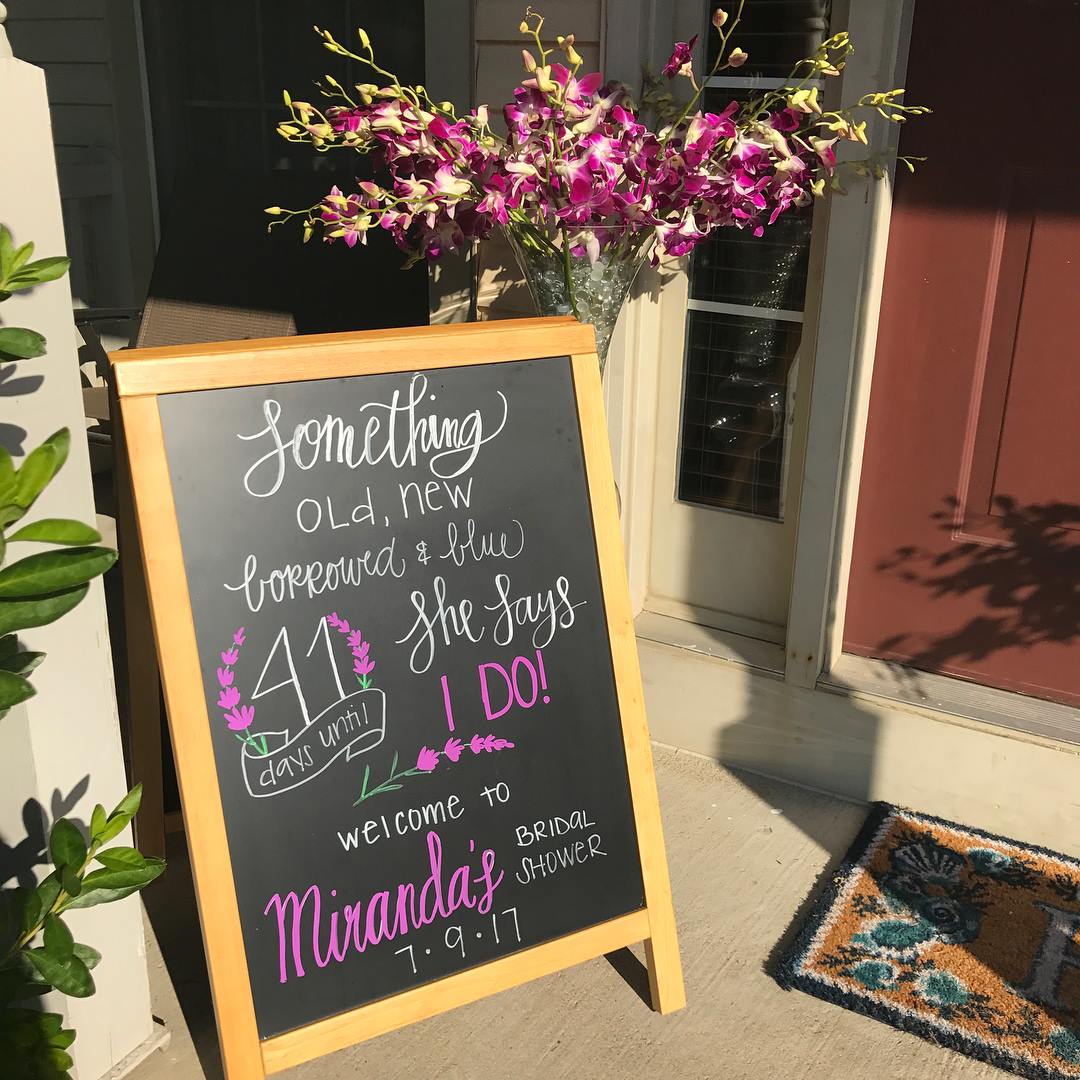 Something
OLd, new
borrowed & blue
41
days until
She Says
I DO!
welcome to
Miranda's
BRIDAL
SHOWER
7.9.17